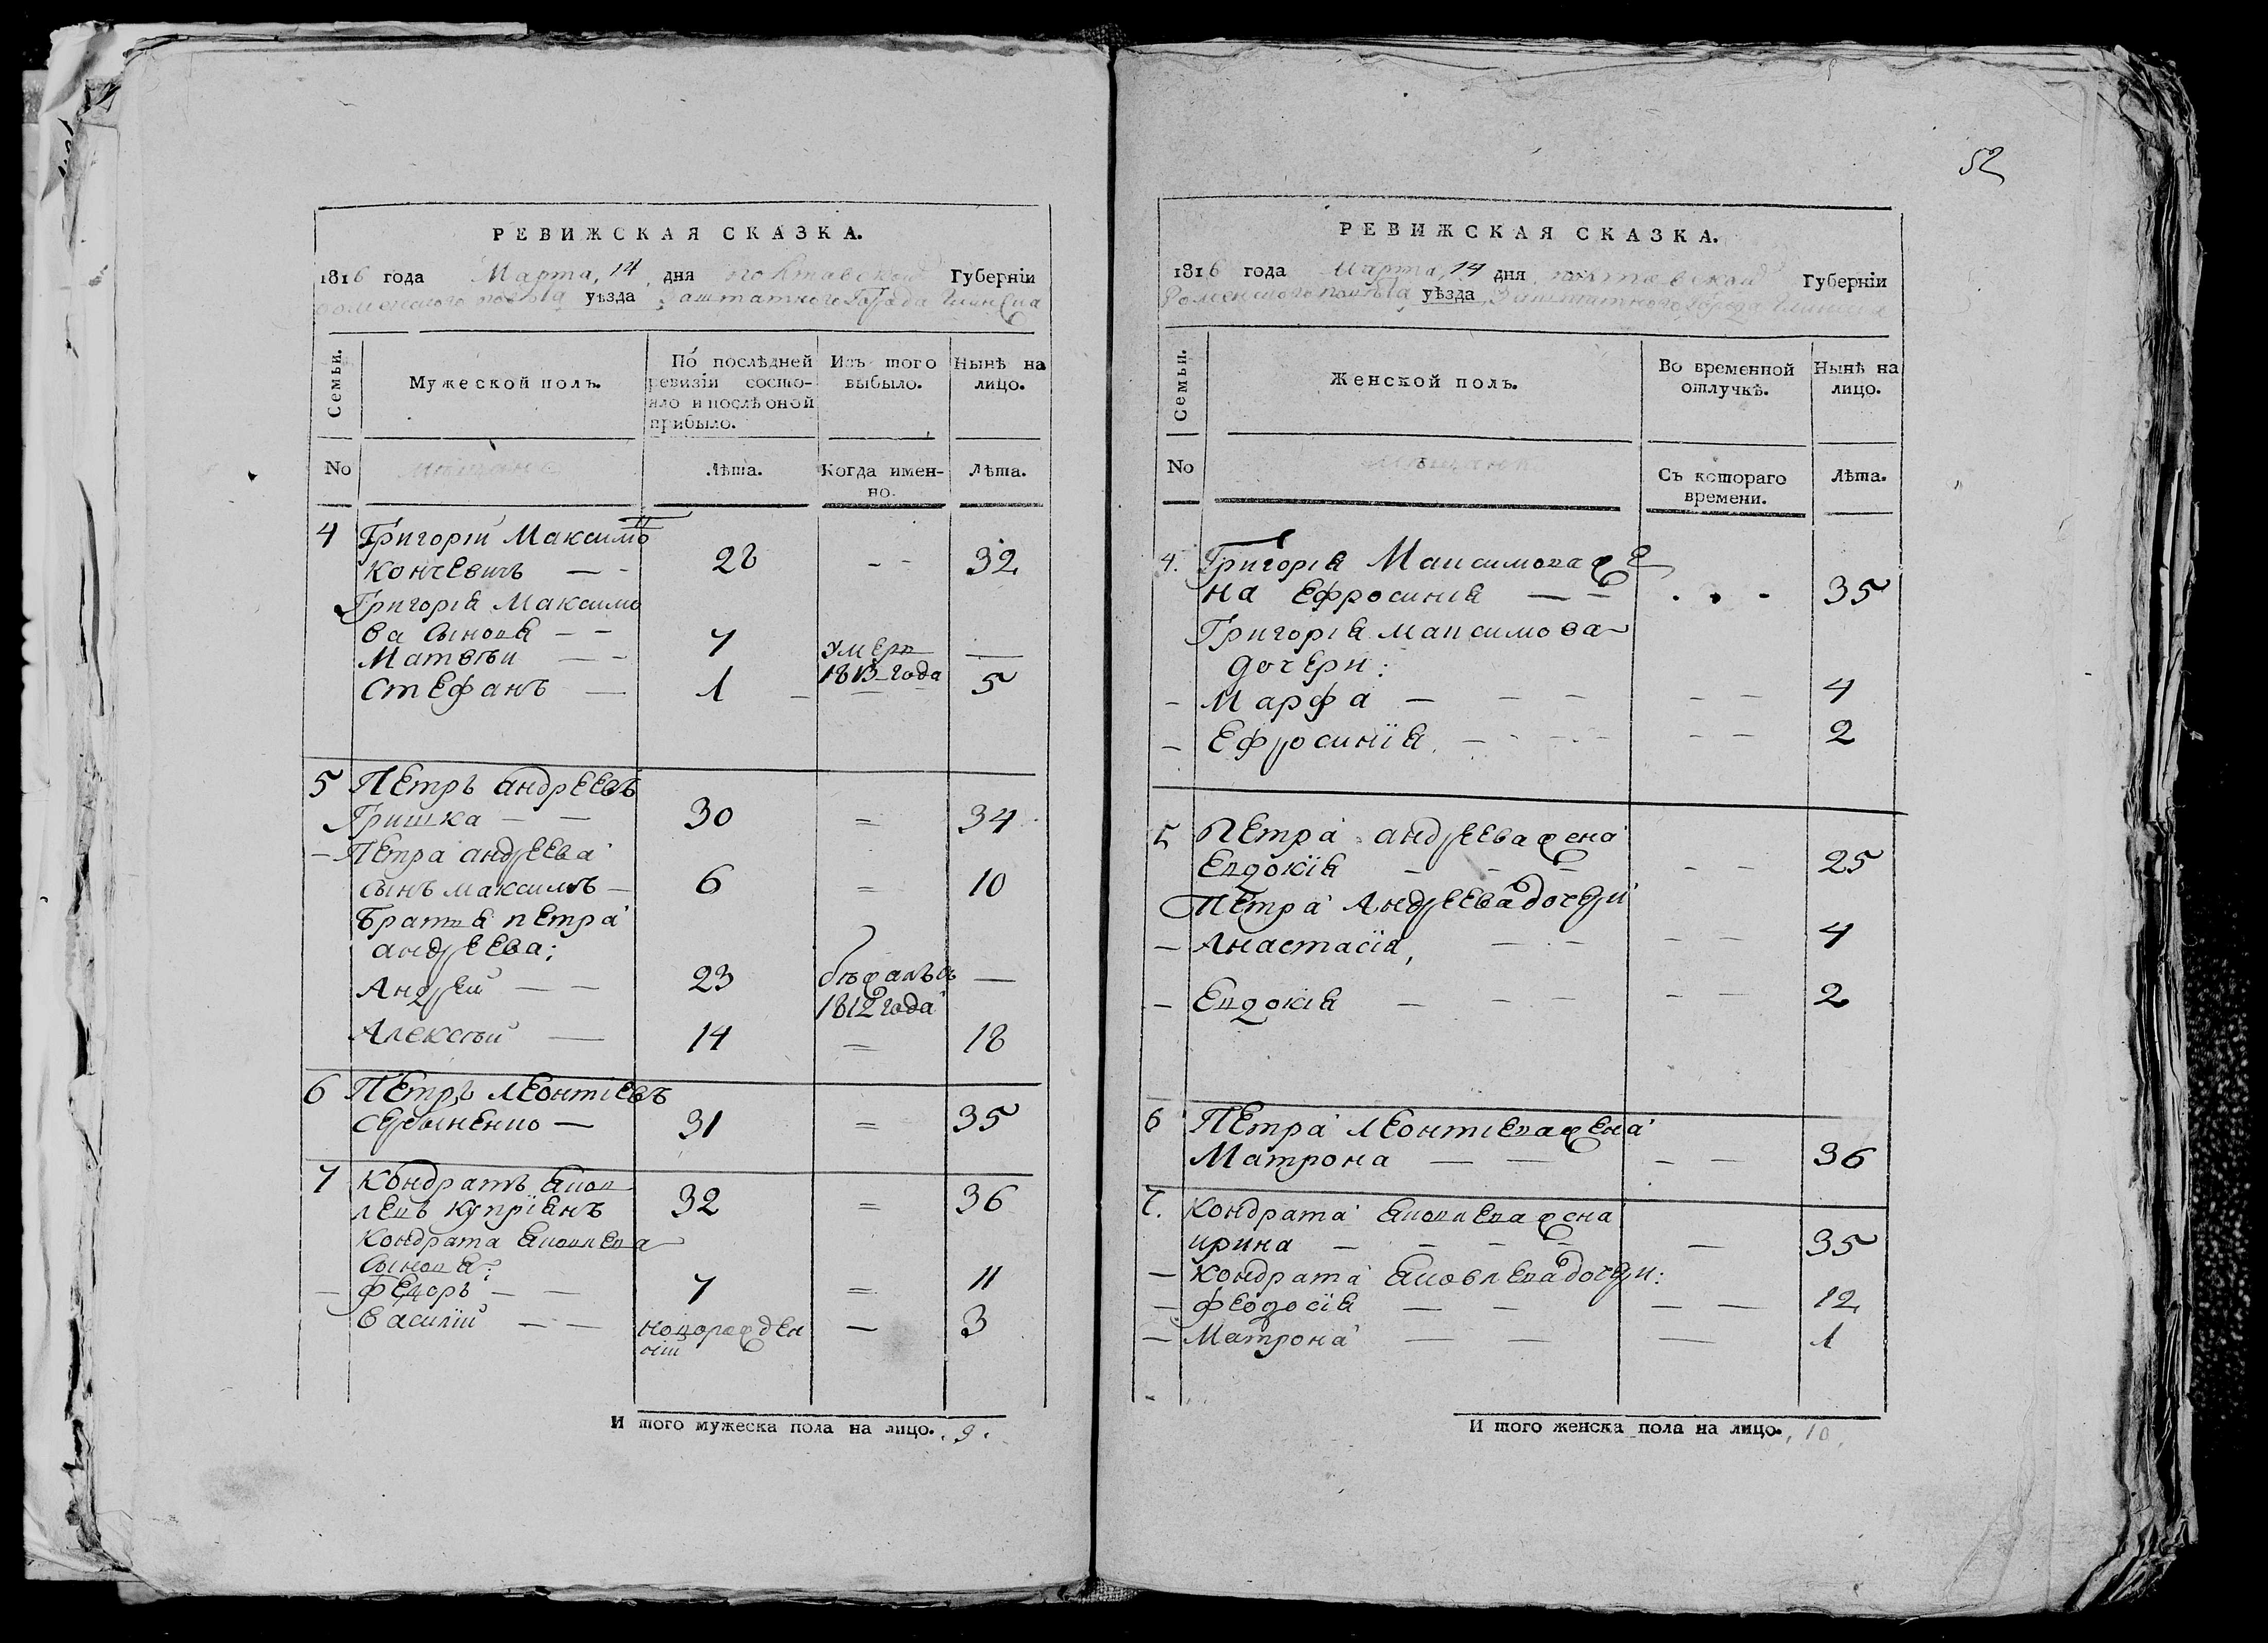 52
РЕВИЖСКАЯ СКАЗКА.
1816 года Марта, 14 дня полтавской Губерніи
роменского повѣта уѣзда Заштатного Города Глинска
Семьи.
Мужеской полъ.
По послѣдней ревизіи состояло и послѣ оной прибыло.
Изъ того выбыло.
Нынѣ на лицо.
No мѣщане Лѣта. Когда именно. Лѣта.
4 Григорій Максимо
Кончевичъ — - 28 - - 32
Григорія Максимо
ва Сыновя — -
Матвѣй — - 7 умеръ —
Стефанъ — 1 — 1813 года 5
5 Петръ андреевъ
Гришка — — 30 = 34
— Петра андреева
сынъ максимъ — 6 = 10
Братья петра
андреева:
Андрей — — 23 бѣжалъ въ —
1812 года
Алексѣй — 14 = 18
6 Петръ леонтіевъ
— 31 = 35
7 Кондратъ Яков
левъ Купріянъ 32 = 36
Кондрата Яковлева
Сыновя:
— Федоръ — — 7 = 11
Василій — — новорожден — 3
ній
И того мужеска пола на лицо. 9.
РЕВИЖСКАЯ СКАЗКА.
1816 года Марта, 14 дня полтавской Губерніи
Роменского повѣта уѣзда Заштатного города Глинска
Семьи.
Женской полъ.
Во временной отлучкѣ.
Нынѣ на лицо.
No мѣщане Съ котораго времени. Лѣта.
4. Григорія Максимова же
на Ефросинія — — . . - 35
Григорія максимова
дочери:
— Марфа — — — — — 4
— Ефросинія. — - — - — — 2
5 Петра андреева жена
Евдокія — — — — — 25
Петра Андреева дочери
— Анастасія, — - — — — 4
— Евдокія — — — — — — 2
6 Петра леонтіева жена
Матрона — — — — 36
7. Кондрата Яковлева жена
ирина — — — — — 35
— Кондрата Яковлева дочери:
— Феодосія — — — — 12
— Матрона — — — 1
И того женска пола на лицо. 10.